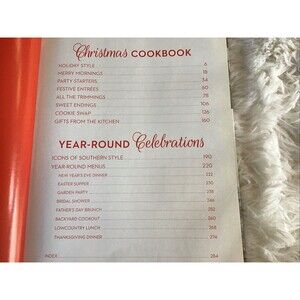 Christmas COOKBOOK
HOLIDAY STYLE 6
MERRY MORNINGS 18
PARTY STARTERS 34
FESTIVE ENTRÉES 60
ALL THE TRIMMINGS 78
SWEET ENDINGS 106
COOKIE SWAP 136
GIFTS FROM THE KITCHEN 160
YEAR-ROUND Celebrations
ICONS OF SOUTHERN STYLE 190
YEAR-ROUND MENUS 220
NEW YEAR'S EVE DINNER 222
EASTER SUPPER 230
GARDEN PARTY 238
BRIDAL SHOWER 246
FATHER'S DAY BRUNCH 252
BACKYARD COOKOUT 260
LOWCOUNTRY LUNCH 268
THANKSGIVING DINNER 274
INDEX 284